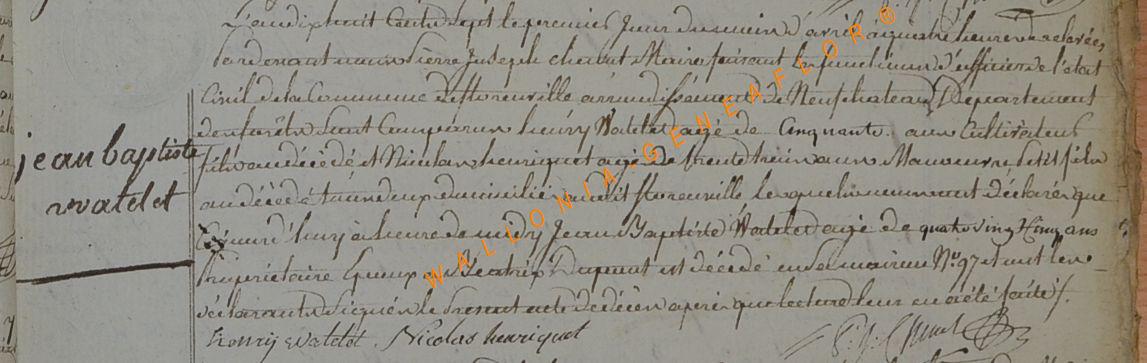 L'an dix huit cent sept le premier jour du mois d'avril à quatre heures de relevée,
Pardevant nous Pierre Joseph Maire faisant les fonctions d'officier de l'état
Civil de la Commune arrondissement de Neufchateau Departement
des forêts sont Comparus henry Watelet agé de Cinquante ans Cultivateur
fils au décédé et Nicolas henriquet agé de trente trois ans Manoeuvre petit fils
au décédé tous deux domiciliés audit lesquels nous ont déclaré que
jean baptiste
watelet
aujourd'huy à heure de midy Jean Baptiste Watelet agé de quatre vingt Cinq ans
Propriétaire Epoux de Beatrix est décédé en sa maison N.° 97 et ont les
déclarants signé le Present acte de décès après que lecture leur en a été faite /.
henry watelet . Nicolas henriquet
WALLONIA-GENEAFLOR©